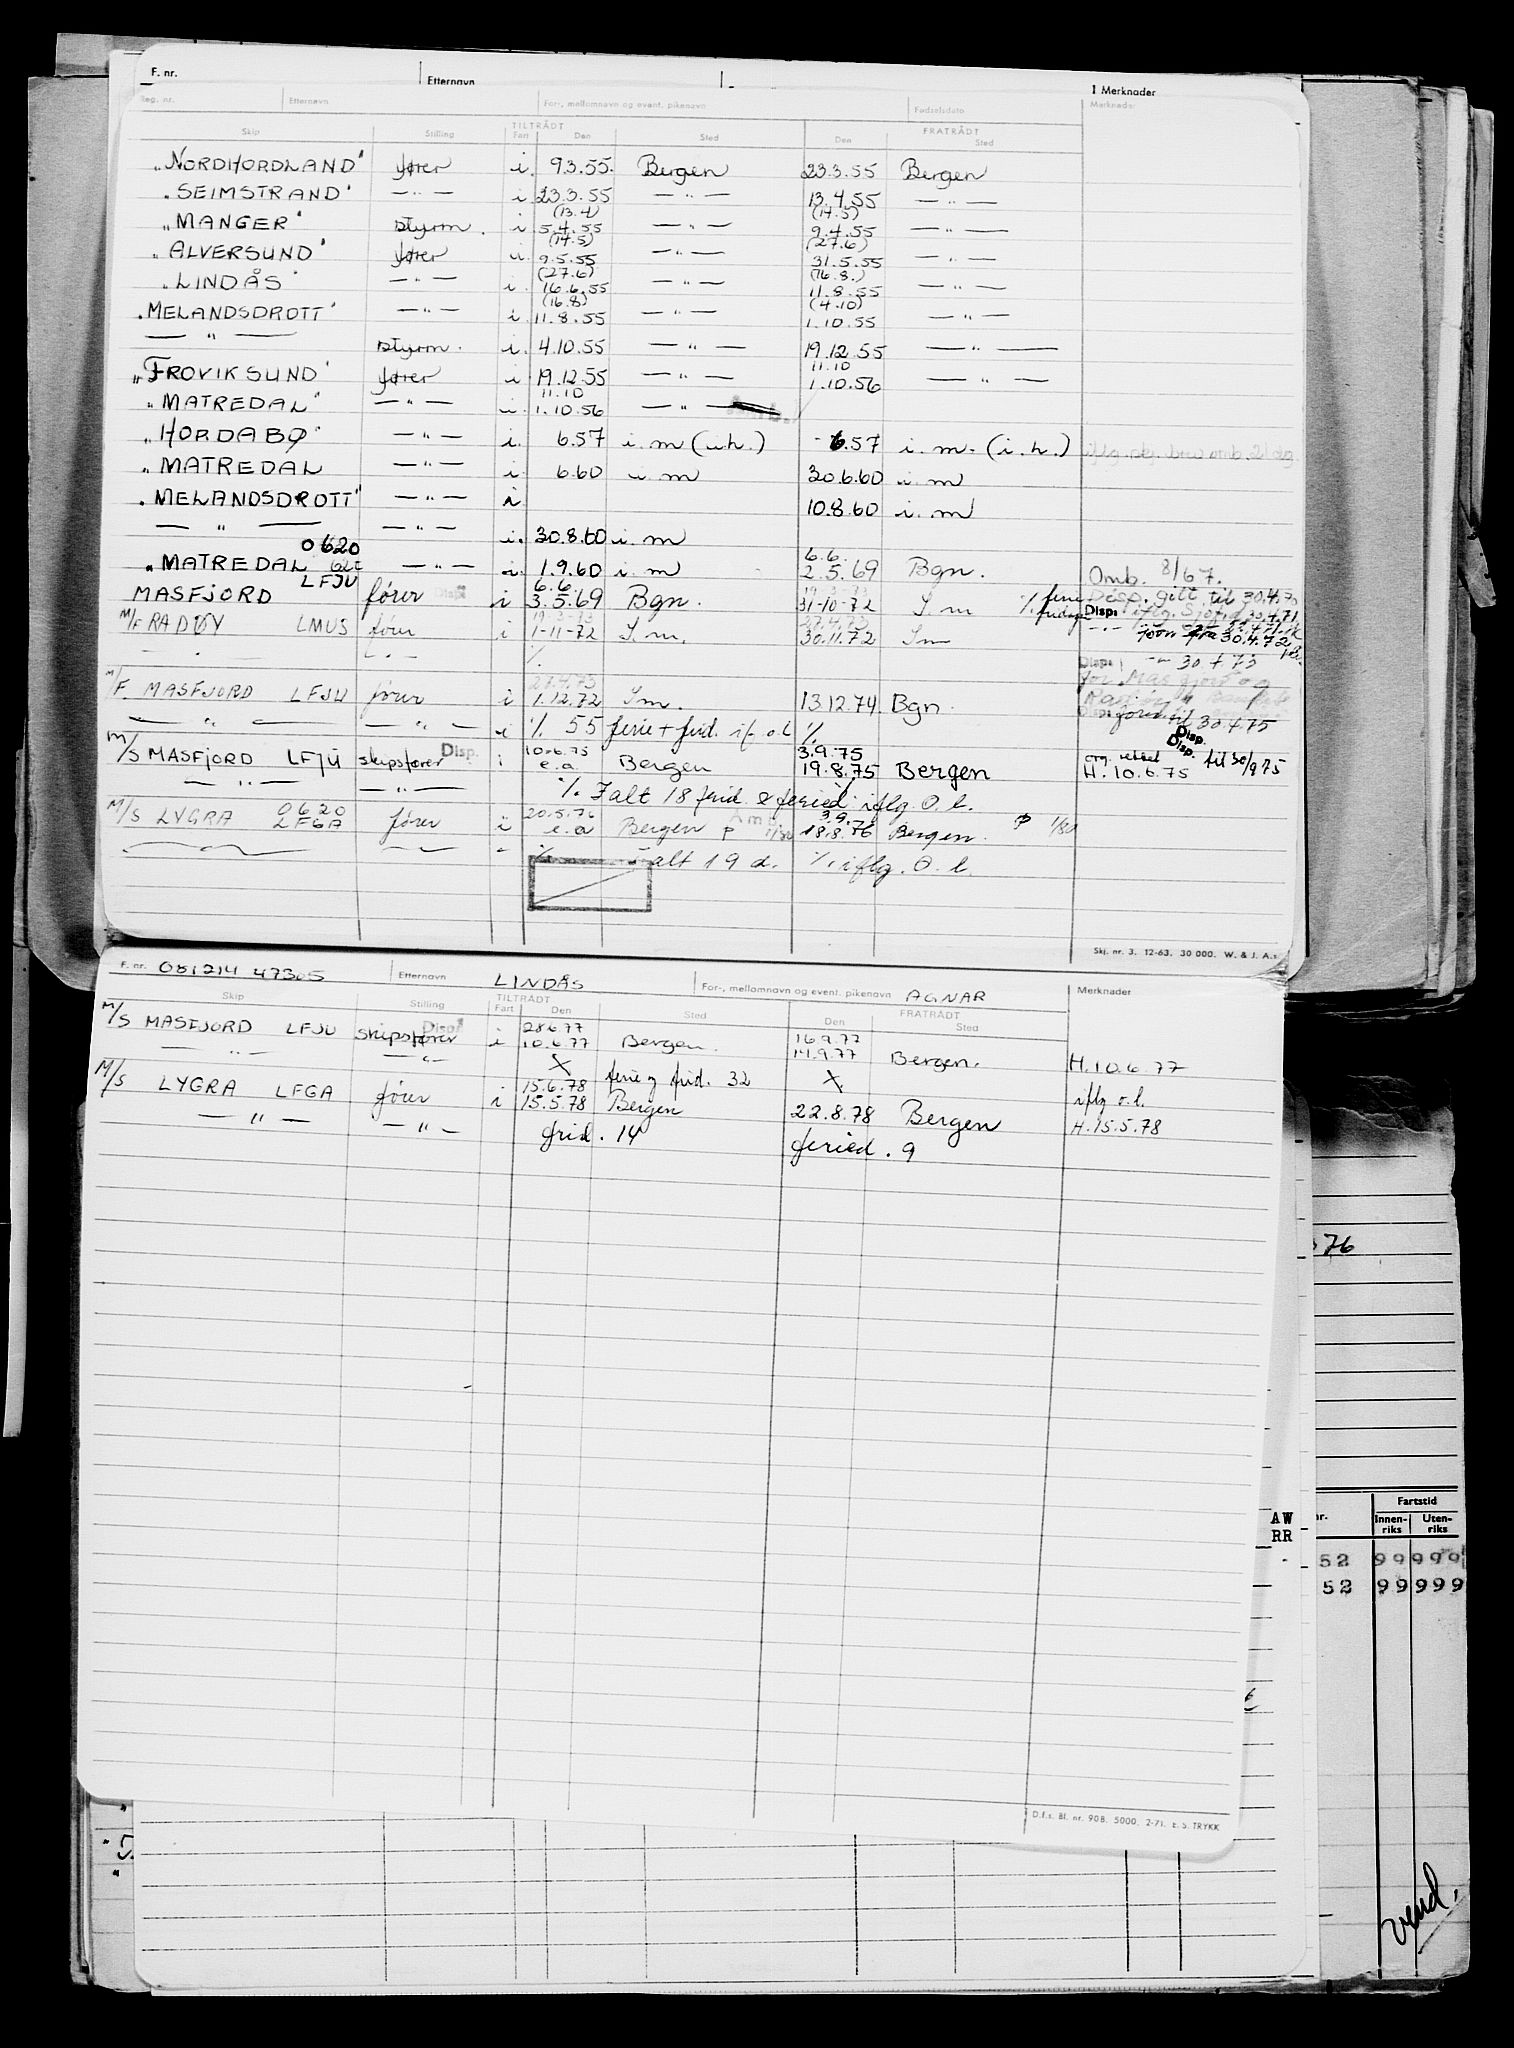 F. nr. Etternavn Merknader
Reg. nr. Etternavn For-, mellomnavn og event. pikenavn Fødselsdato Merknader
TILTRÅDT FRATRÅDT
Skip Stilling Fart Den Sted Den Sted
"NORDHORDLAND" fører i. 9.3.55. Bergen 23.3.55 Bergen
"SEIMSTRAND" — " — i 23.3.55 — " — 13.4.55 — " —
(13.4) (14.5)
"MANGER" styrm. i. 5.4.55 — " — 9.4.55 — " —
(14.5) (27.6)
"ALVERSUND" fører i. 9.5.55 — " — 31.5.55 — " —
(27.6) (16.8.)
"LINDÅS" — " — i. 16.6.55 — " — 11.8.55 — " —
(16.8) (4.10)
"MELANDSDROTT" — " — i. 11.8.55 — " — 1.10.55 — " —
— " — styrm. i. 4.10.55 — " — 19.12.55 — " —
"FROVIKSUND" fører i 19.12.55 — " — 11.10 1.10.56 — " —
11.10
"MATREDAL" — " — i. 1.10.56 — " —
"HORDABØ" — " — i. 6.57 i. m (i.h.) - 6.57 i. m. (i. h.)
"MATREDAL — " — i. 6.60 i. m 30.6.60 i. m
"MELANDSDROTT" — " — i 10.8.60 i. m
— " — — " — i. 30.8.60 i. m
0620 6.6.
"MATREDAL — " — i. 1.9.60 i. m 2.5.69 Bgn. Omb. 8/67.
LFJU 6.6.
MASFJORD fører Disp i 3.5.69 Bgn. 31-10-72 I m % ferie Disp. gitt til 30.4.70
M/F RADØY LMUS fører i 1-11-72 I. m. 27.4.73 30.11.72 I m fridage Disp. iflg. 30.4.71
— . — — " — %. 30.4.72
Disp. — " — 30.4.73
M/F. MASFJORD LFJU fører i 27.4.73 1.12.72 I m. 13.12.74. Bgn. for Masfjord og
— " — — " — i %. 55 ferie + frid. if. o.l %. til 30.4.75
Disp.
Disp.
M/S MASFJORD LFJU skipsfører Disp. i 10.6.75 e.a. Bergen 3.9.75 19.8.75 Bergen H. 10.6.75 til 30/9 75
— " — — " — %. Ialt 18 frid & feried. iflg. O. l.
M/S LYGRA 0620 LFGA fører i 20.5.76 e.a Bergen 3.9.76 18.8.76 Bergen. 1/80
Ialt 19 d. %. iflg. O. l.
Skj. nr. 3. 12-63. 30 000. W. & J. A.s
F. nr. 081214 47305 Etternavn LINDÅS For-, mellomnavn og event. pikenavn AGNAR Merknader
TILTRÅDT FRATRÅDT
Skip Stilling Fart Den Sted Den Sted
M/S MASFJORD LFJU skipsfører Disp i 28.6.77 10.6.77 Bergen. 16.9.77 14.9.77 Bergen. H. 10.6.77
— " — — " — X ferie og frid. 32 X. iflg o.l.
M/S LYGRA LFGA fører i 15.6.78 15.5.78 Bergen 22.8.78 Bergen H. 15.5.78
— " — — " — frid. 14 feried. 9
76
Fartstid
nr. Innen-riks Uten-riks
AW
RR
52 99 999
52 99 999
D.f.s. Bl. nr. 90B. 5000. 2-71. E. S. TRYKK
vend.